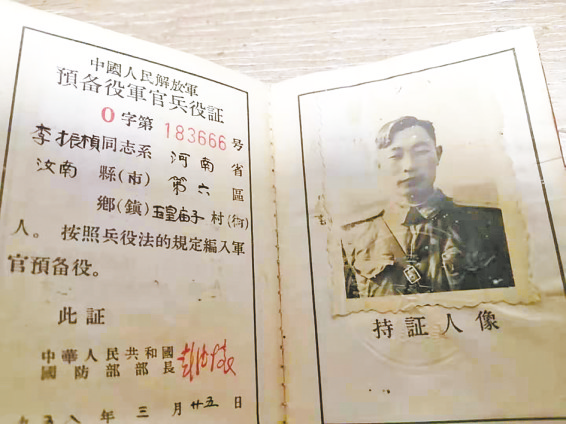 中國人民解放軍
預备役軍官兵役証
O字第 183666 号
李振楨同志系 河南 省
汝南 縣(市) 第六 區
鄉(鎮) 玉皇庙子 村(街)
人。 按照兵役法的規定編入軍
官預备役。
此証
中華人民共和國
國防部部長 彭德怀
九五八年三月廿五日
持証人像